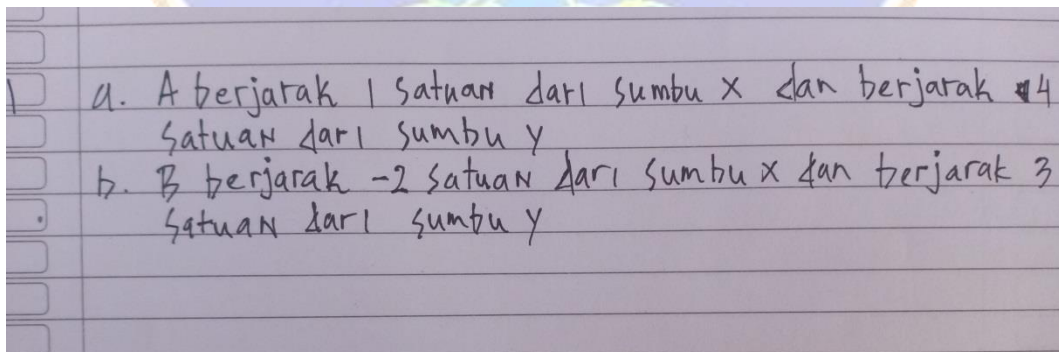 1 a. A berjarak 1 satuan dari sumbu x dan berjarak 4
satuan dari sumbu y
b. B berjarak -2 satuan dari sumbu x dan berjarak 3
satuan dari sumbu y